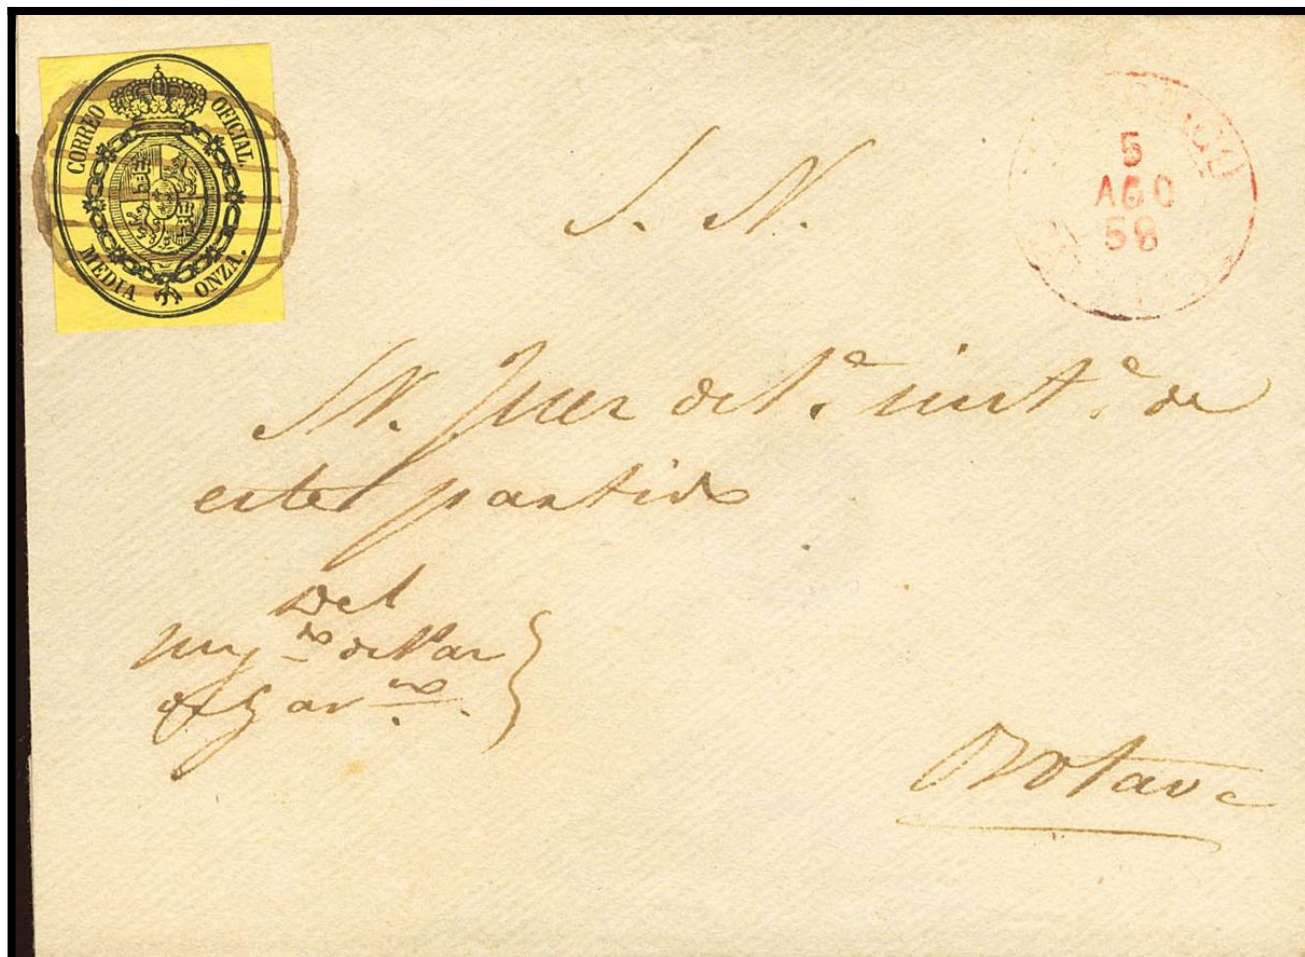 CORREO OFICIAL.
MEDIA ONZA.
5
AGO
58
S. N.
SN. Juez de 1.ª inst.ª de
este partido
Del
Juzg.do de Par
Orotava